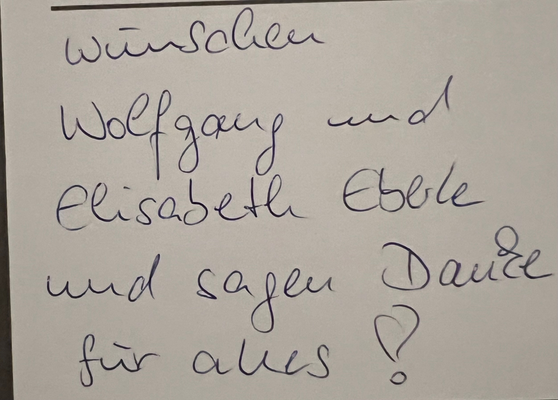 wünschen
Wolfgang und
Elisabeth Eberle
und sagen Danke
für alles!